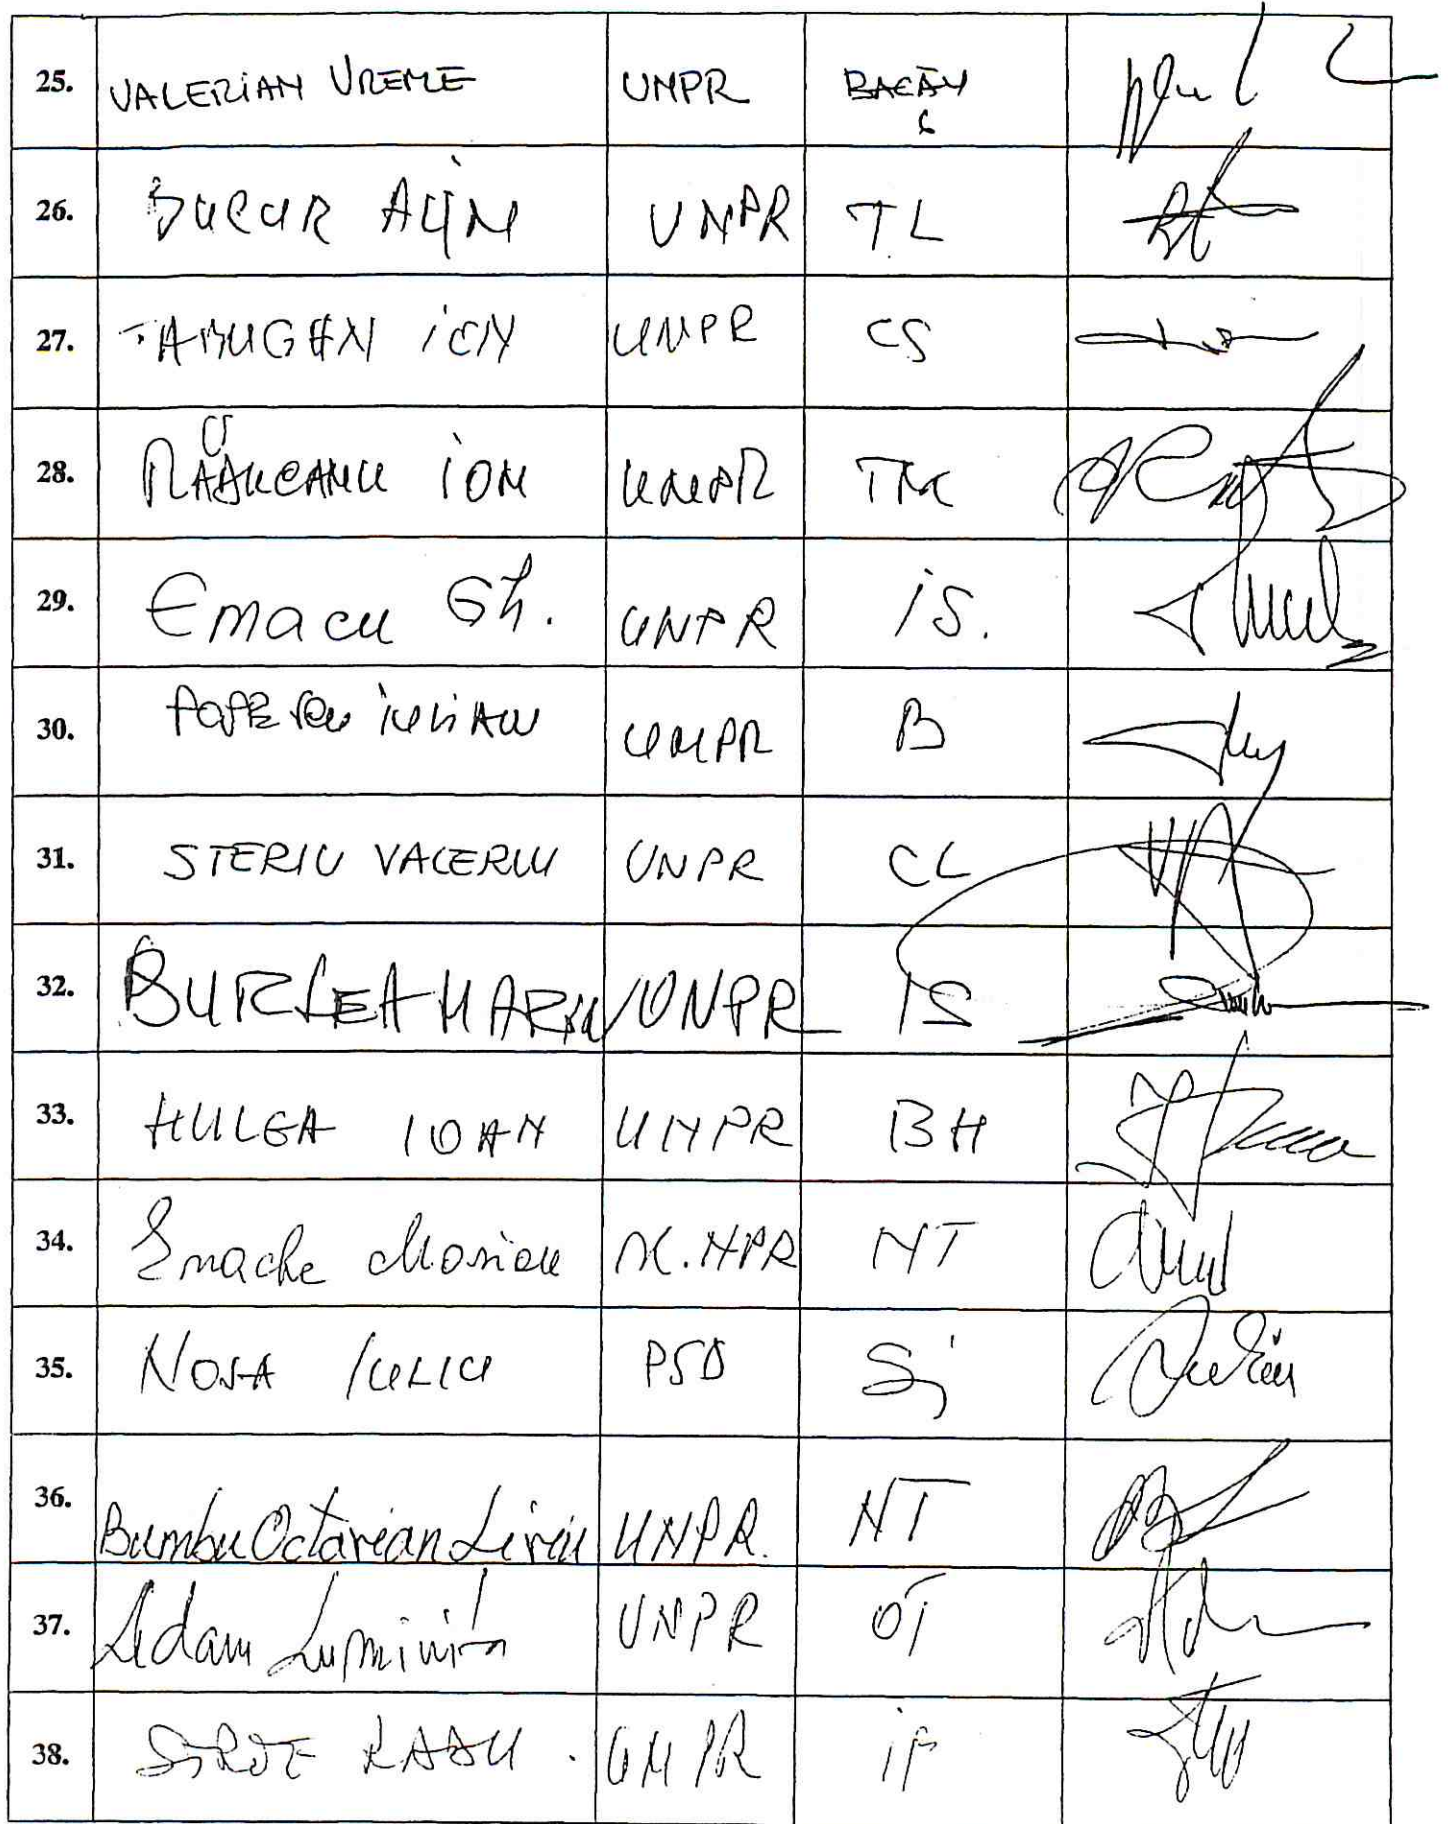 25. VALERIAN VREME UNPR BACĂU
6
26. BUCUR ALIN UNPR TL
27. TABUGAN ION UNPR CS
28. RĂDUCANU ION UNPR TM
29. Emacu Gh. UNPR IS.
30. POPESCU IULIAN UNPR B
31. STERIU VALERIU UNPR CL
32. BURLEA MARIN UNPR IS
33. HULEA IOAN UNPR BH
34. Enache Marian U.NPR NT
35. NOSA IULIU PSD SJ
36. Bumbu Octavian Liviu UNPR. NT
37. Adam Luminita UNPR OT
38. RADU UNPR IF